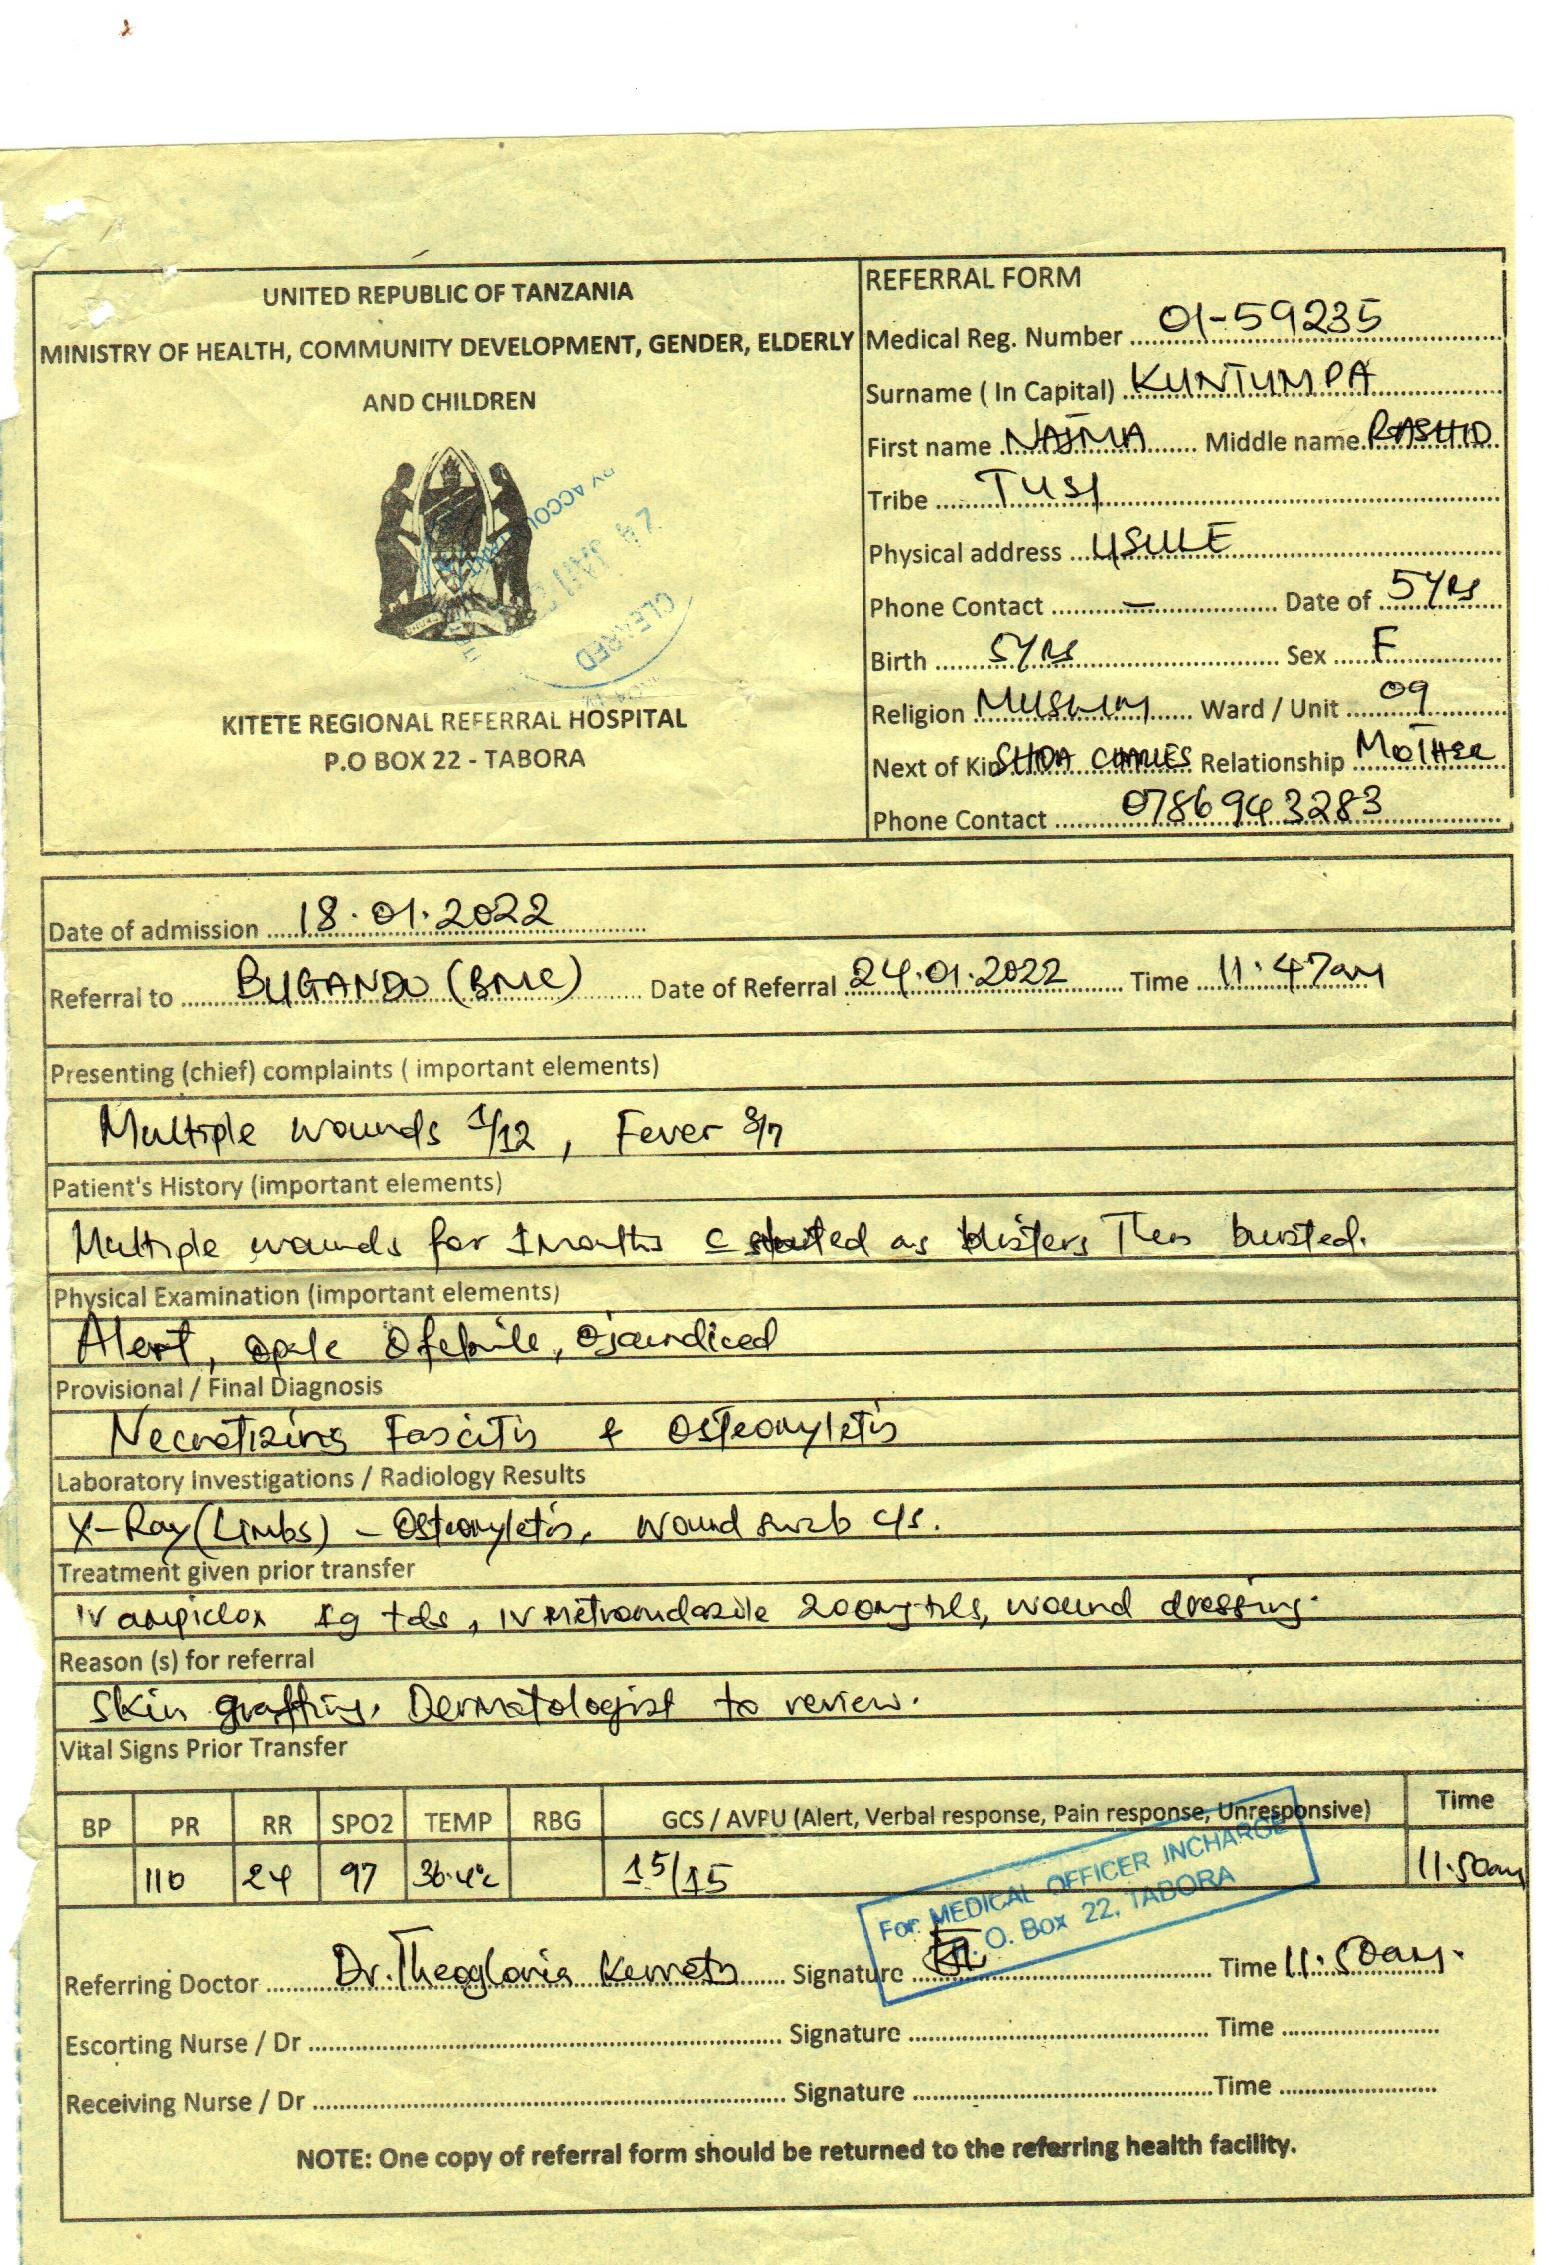 UNITED REPUBLIC OF TANZANIA
MINISTRY OF HEALTH, COMMUNITY DEVELOPMENT, GENDER, ELDERLY
AND CHILDREN
CLEARED
KITETE REGIONAL REFERRAL HOSPITAL
P.O BOX 22 - TABORA
REFERRAL FORM
Medical Reg. Number 01-59235
Surname ( In Capital) KUNTUMPA
First name NAJMA Middle name RASHID
Tribe TUSI
Physical address USULE
Phone Contact – Date of 5Yrs
Birth 5Yrs Sex F
Religion MUSLIM Ward / Unit 09
Next of Kin SHIDA CHARLES Relationship MOTHER
Phone Contact 0786943283
Date of admission 18.01.2022
Referral to BUGANDO (BMC) Date of Referral 24.01.2022 Time 11:47am
Presenting (chief) complaints ( important elements)
Multiple wounds 1/12, Fever 3/7
Patient's History (important elements)
Multiple wounds for 1 months c started as blisters Then bursted.
Physical Examination (important elements)
Alert, opale ofebrile, ojaundiced
Provisional / Final Diagnosis
Necrotizing Fascitis & Osteomyletis
Laboratory Investigations / Radiology Results
X-Ray (Limbs) - Osteomyletis, wound swab c/s.
Treatment given prior transfer
IV ampiclox 1g tds, IV metronidazole 200mg tds, wound dressing.
Reason (s) for referral
Skin grafting, Dermatologist to review.
Vital Signs Prior Transfer
BP PR RR SPO2 TEMP RBG GCS / AVPU (Alert, Verbal response, Pain response, Unresponsive) Time
110 24 97 36.4°c 15/15 11:50am
For MEDICAL OFFICER INCHARGE
P. O. Box 22, TABORA
Referring Doctor Dr. Theogloria Kemets Signature Time 11:50am.
Escorting Nurse / Dr Signature Time
Receiving Nurse / Dr Signature Time
NOTE: One copy of referral form should be returned to the referring health facility.